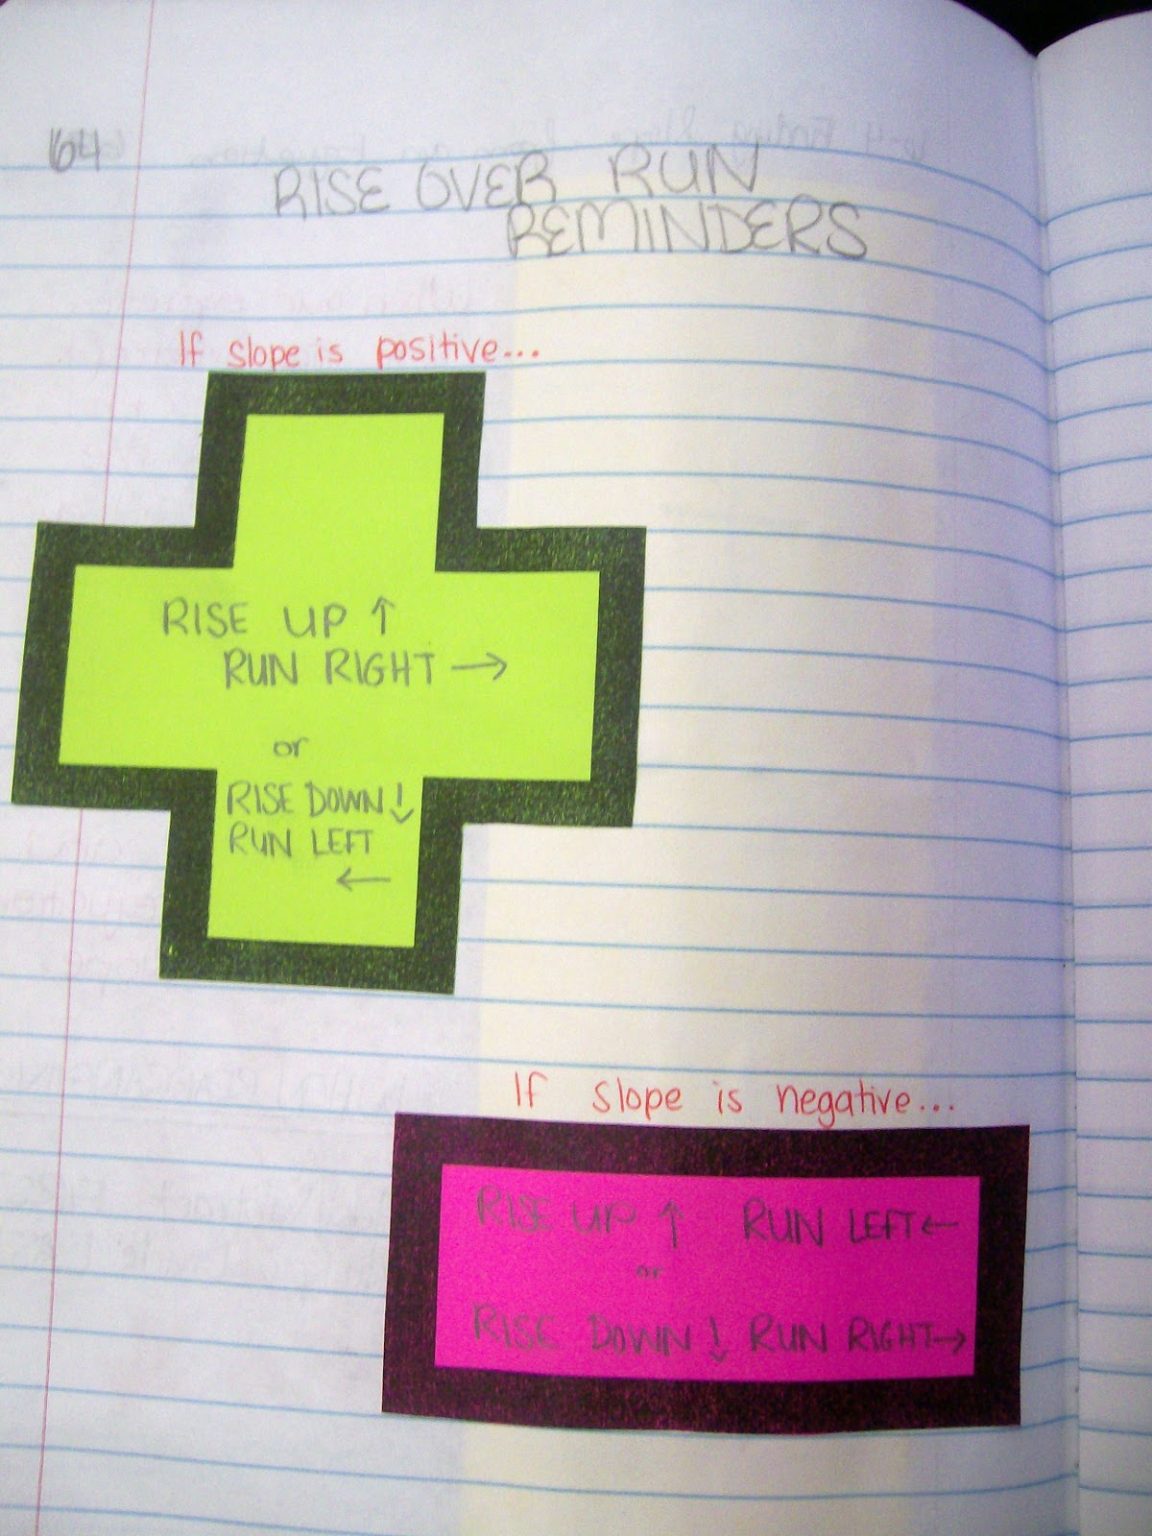 64
RISE OVER RUN
REMINDERS
If slope is positive...
RISE UP ↑
RUN RIGHT →
or
RISE DOWN ↓
RUN LEFT
←
If slope is negative...
RISE UP ↑ RUN LEFT ←
or
RISE DOWN ↓ RUN RIGHT →